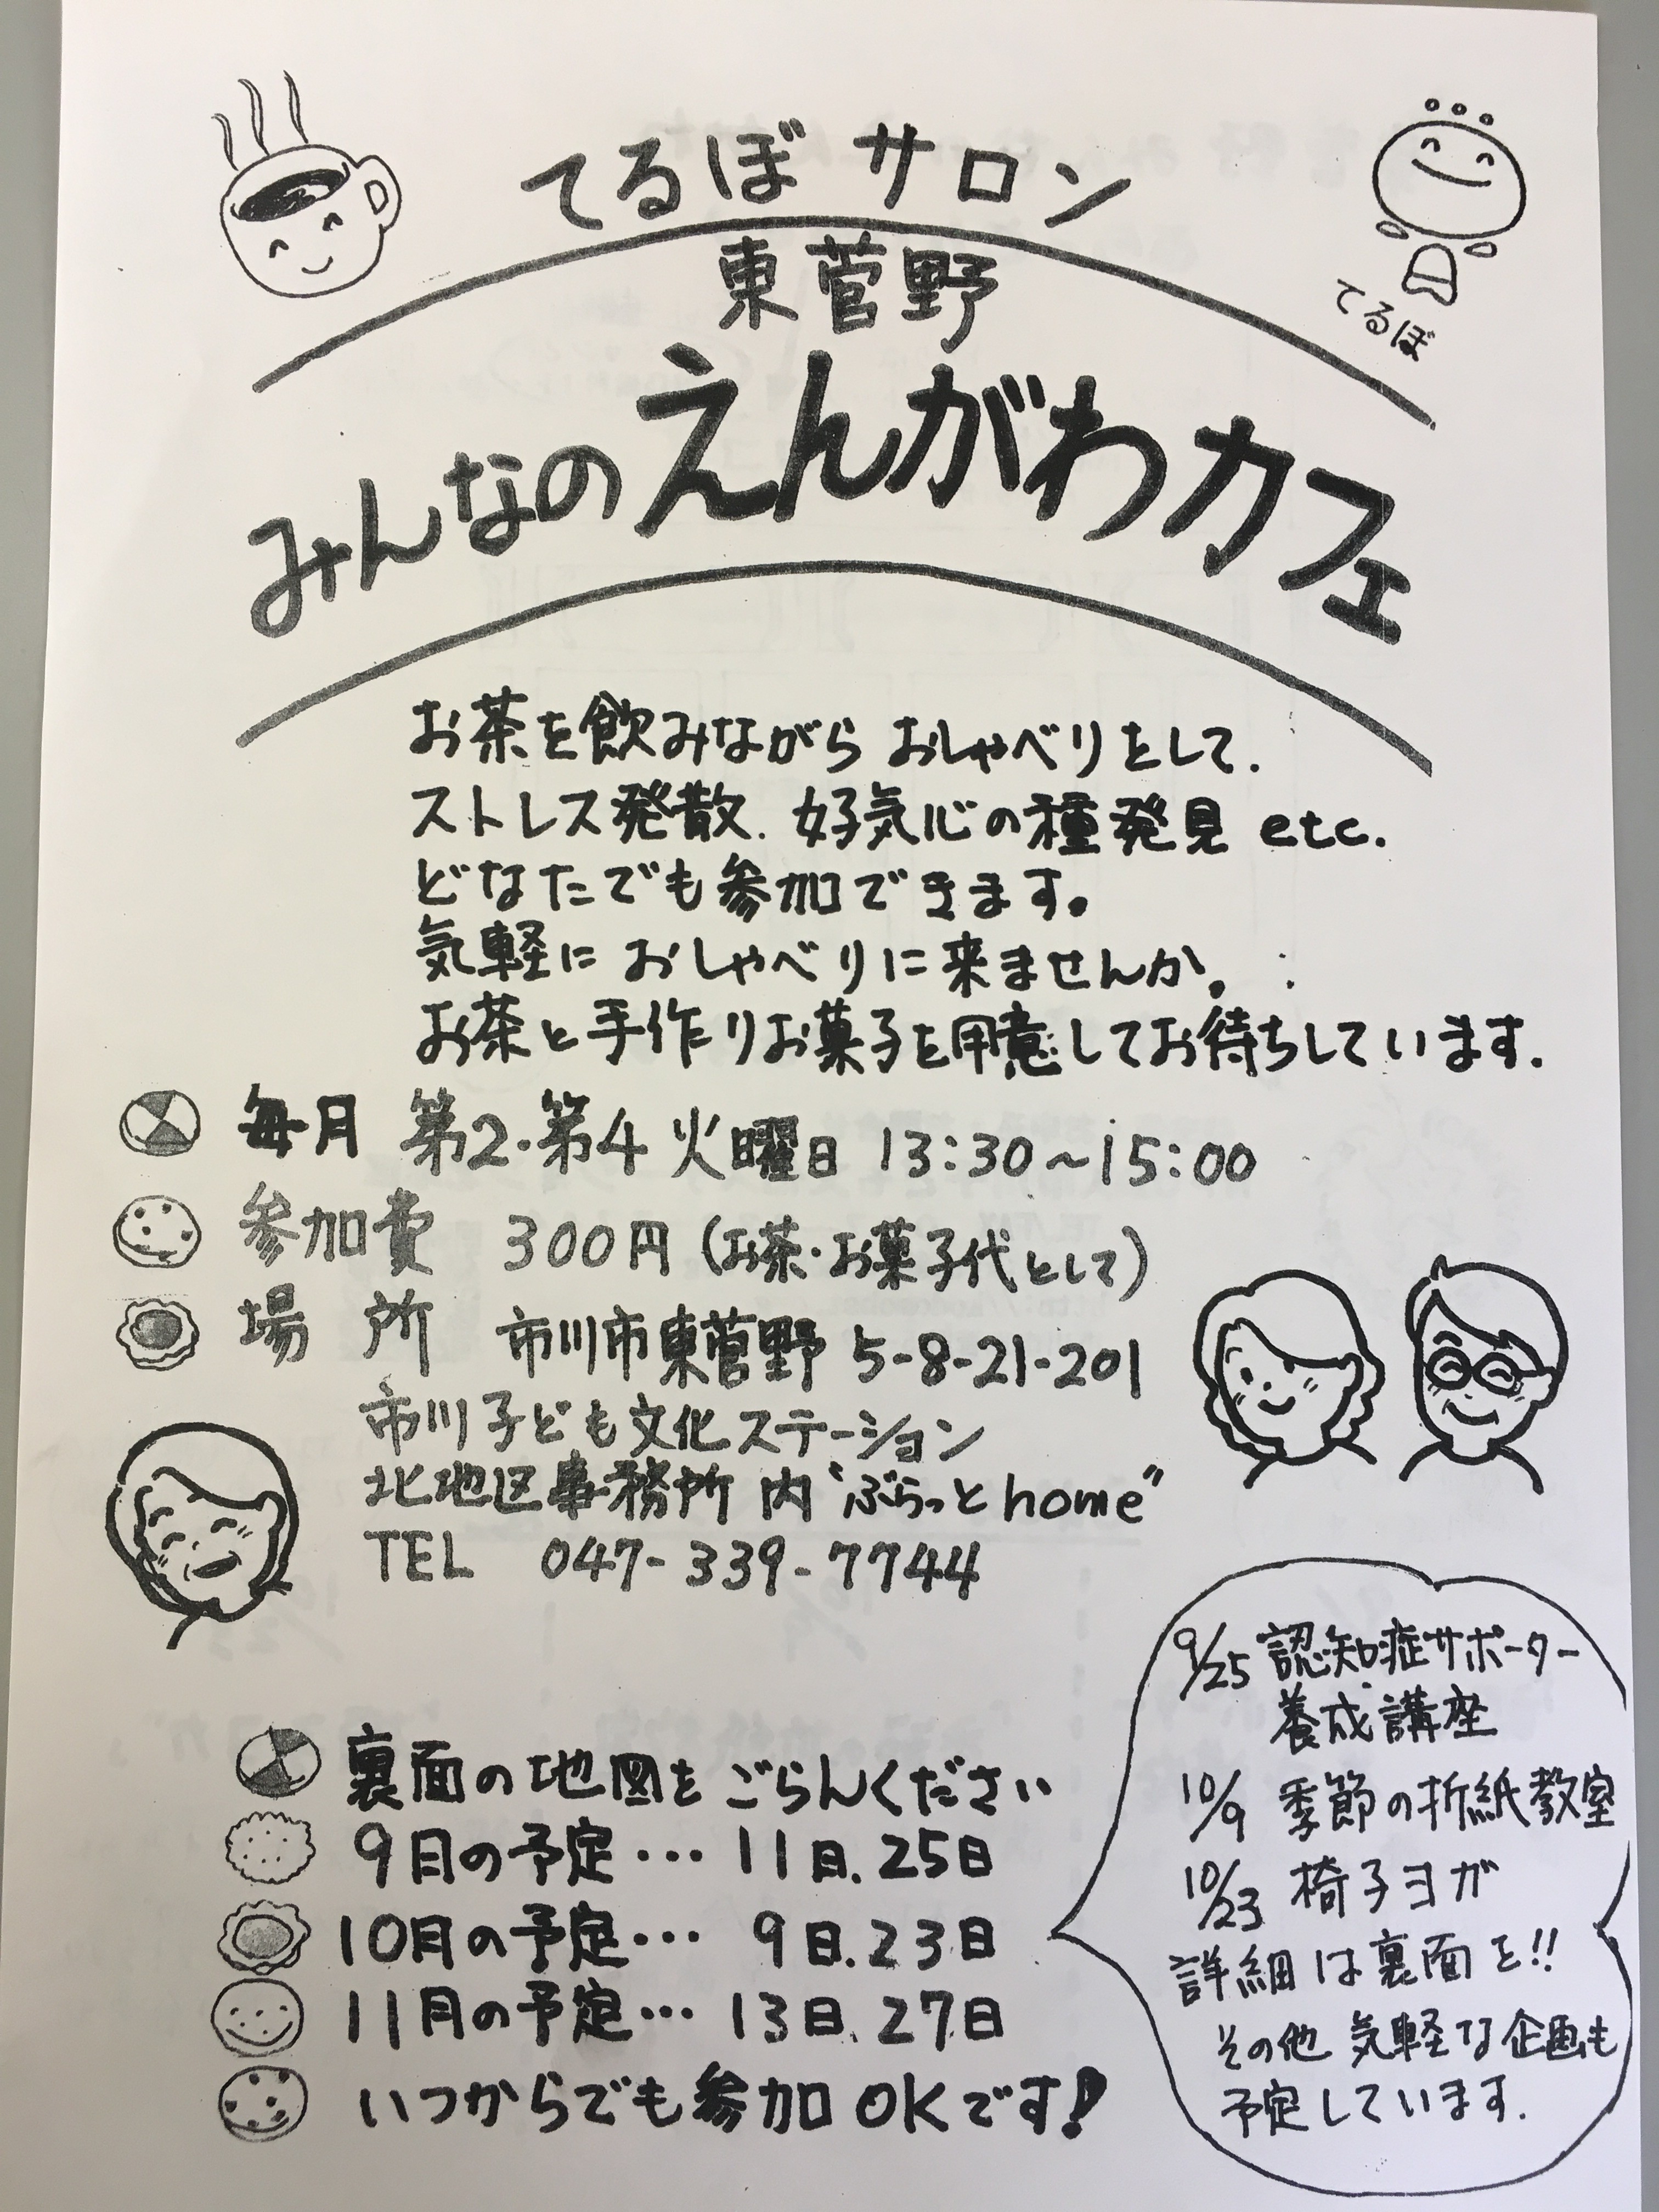 てるぼサロン
てるぼ
東菅野
みんなのえんがわカフェ
お茶を飲みながら おしゃべりをして、
ストレス発散、好気心の種発見 etc.
どなたでも参加できます。
気軽に おしゃべりに来ませんか。
お茶と手作りお菓子を用意してお待ちしています.
毎月 第2・第4 火曜日 13:30～15:00
参加費 300円 (お茶・お菓子代として)
場 所 市川市東菅野 5-8-21-201
市川子ども文化ステーション
北地区事務所内 "ぷらっとhome"
TEL 047-339-7744
裏面の地図を ごらんください
9月の予定・・・ 11日、25日
10月の予定・・・ 9日、23日
11月の予定・・・ 13日、27日
いつからでも参加OKです!
9/25 認知症サポーター
養成講座
10/9 季節の折紙教室
10/23 椅子ヨガ
詳細は裏面を!!
その他 気軽な企画も
予定しています.